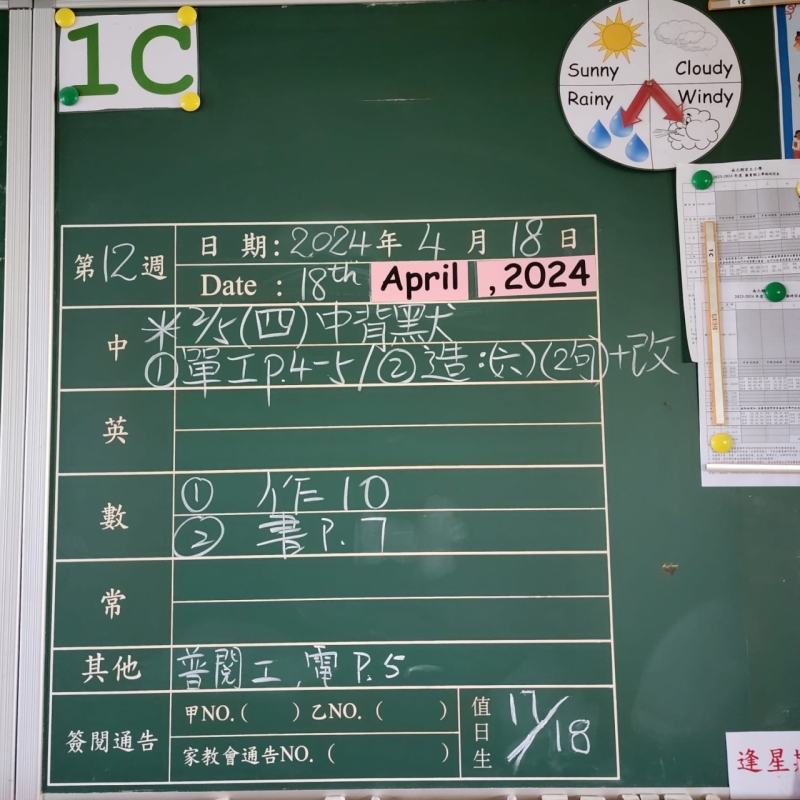 1C
Sunny
Cloudy
Rainy
Windy
第12週
日 期: 2024年 4月 18日
Date : 18th April , 2024
中
* 2/5(四)中背默
① 單工p.4-5/② 造:(六)(2句)+改
英
數
① 作10
② 書P.7
常
其他
普閱工,電P.5
簽閱通告
甲NO.( ) 乙NO.( )
家教會通告NO.( )
值日生
17/18
1C
逢星期